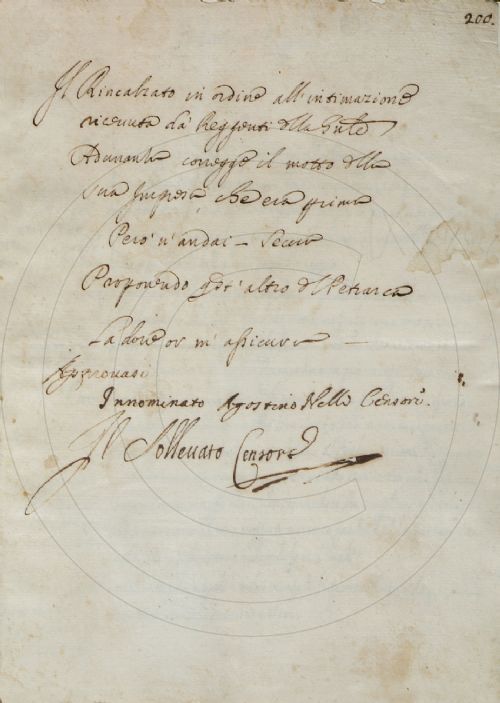 200.
Il Rincalzato in ordine all'intimazione
riceuuta da' Reggenti della
Adunanza corregge il motto della
sua Impresa che era prima
Pero' n' andai - Secur
Proponendo qst' altro d Petrarca
La doue or m' assicura —
Approuasi
Innominato Agostino Nelli Censore.
Il Solleuato Censore